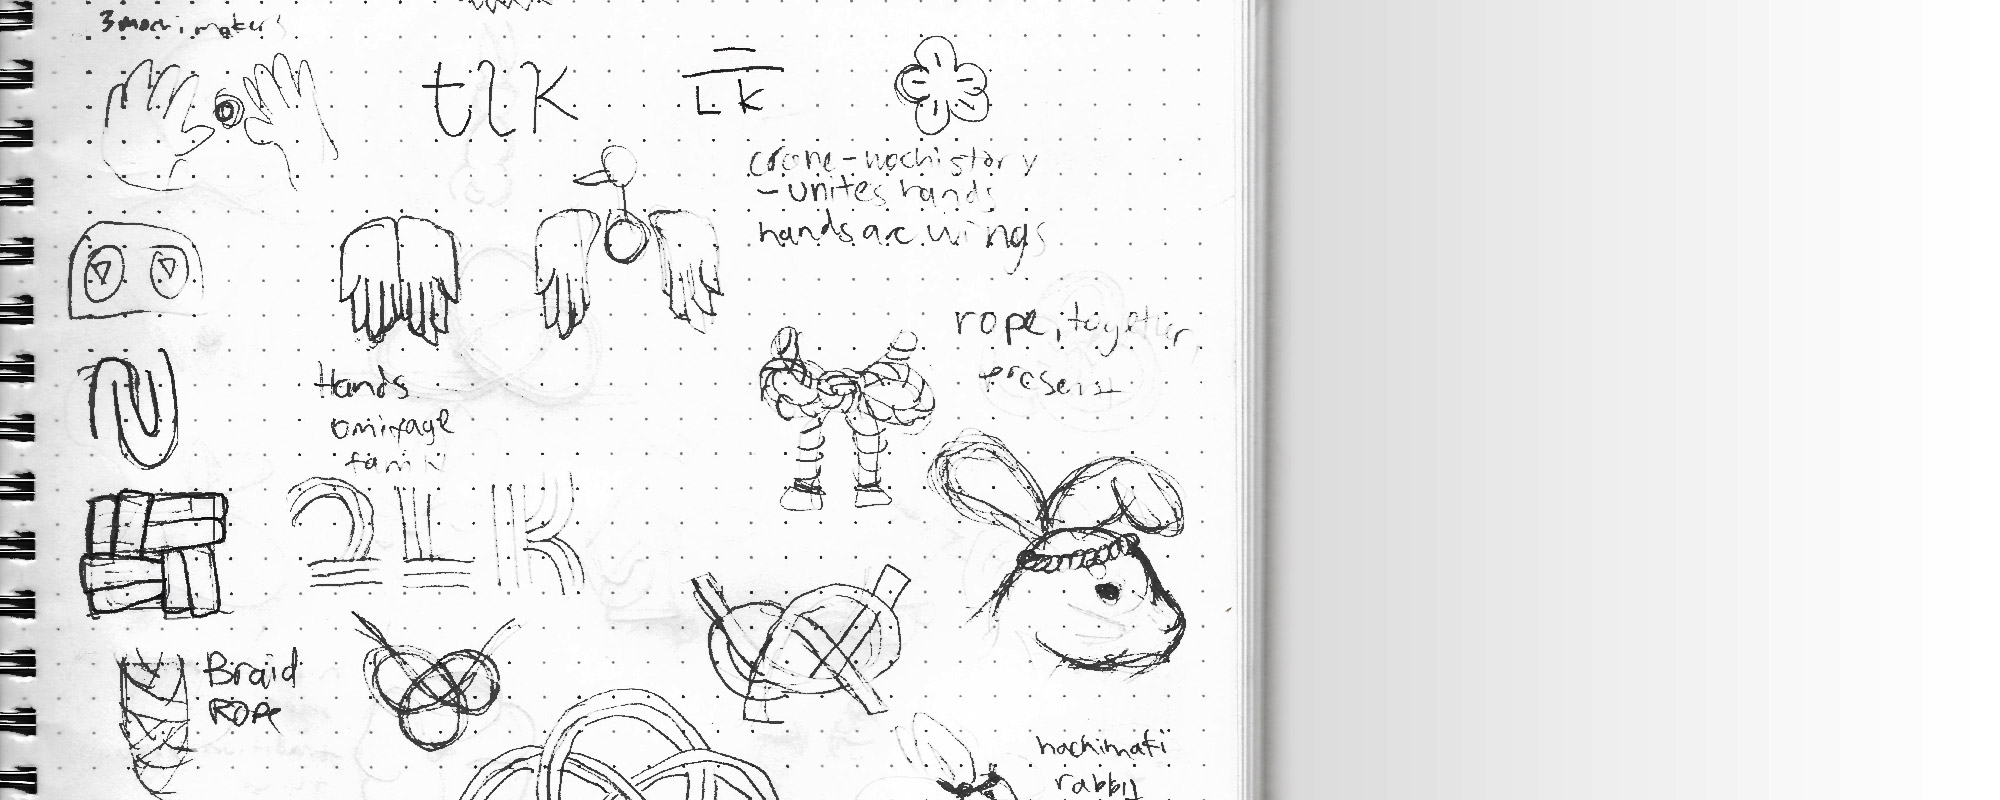 3 mochi makers
tlk
LK
crane-mochi story
-unites hands
hands are wings
rope, together
present
Hands
omiyage
family
Braid
Rope
hachimaki
rabbit